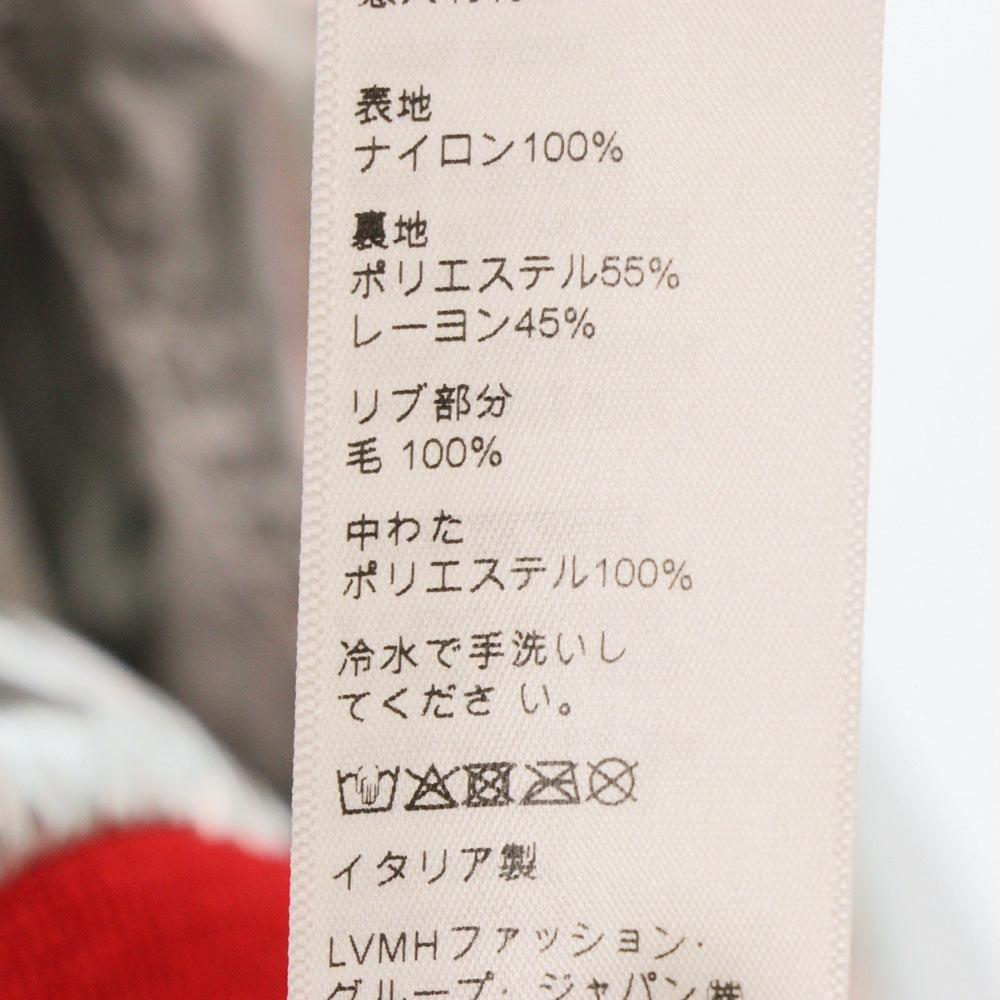 表地
ナイロン100%
裏地
ポリエステル55%
レーヨン45%
リブ部分
毛 100%
中わた
ポリエステル100%
冷水で手洗いし
てくださ い。
イタリア製
LVMHファッション・
グループ・ジャパン㈱